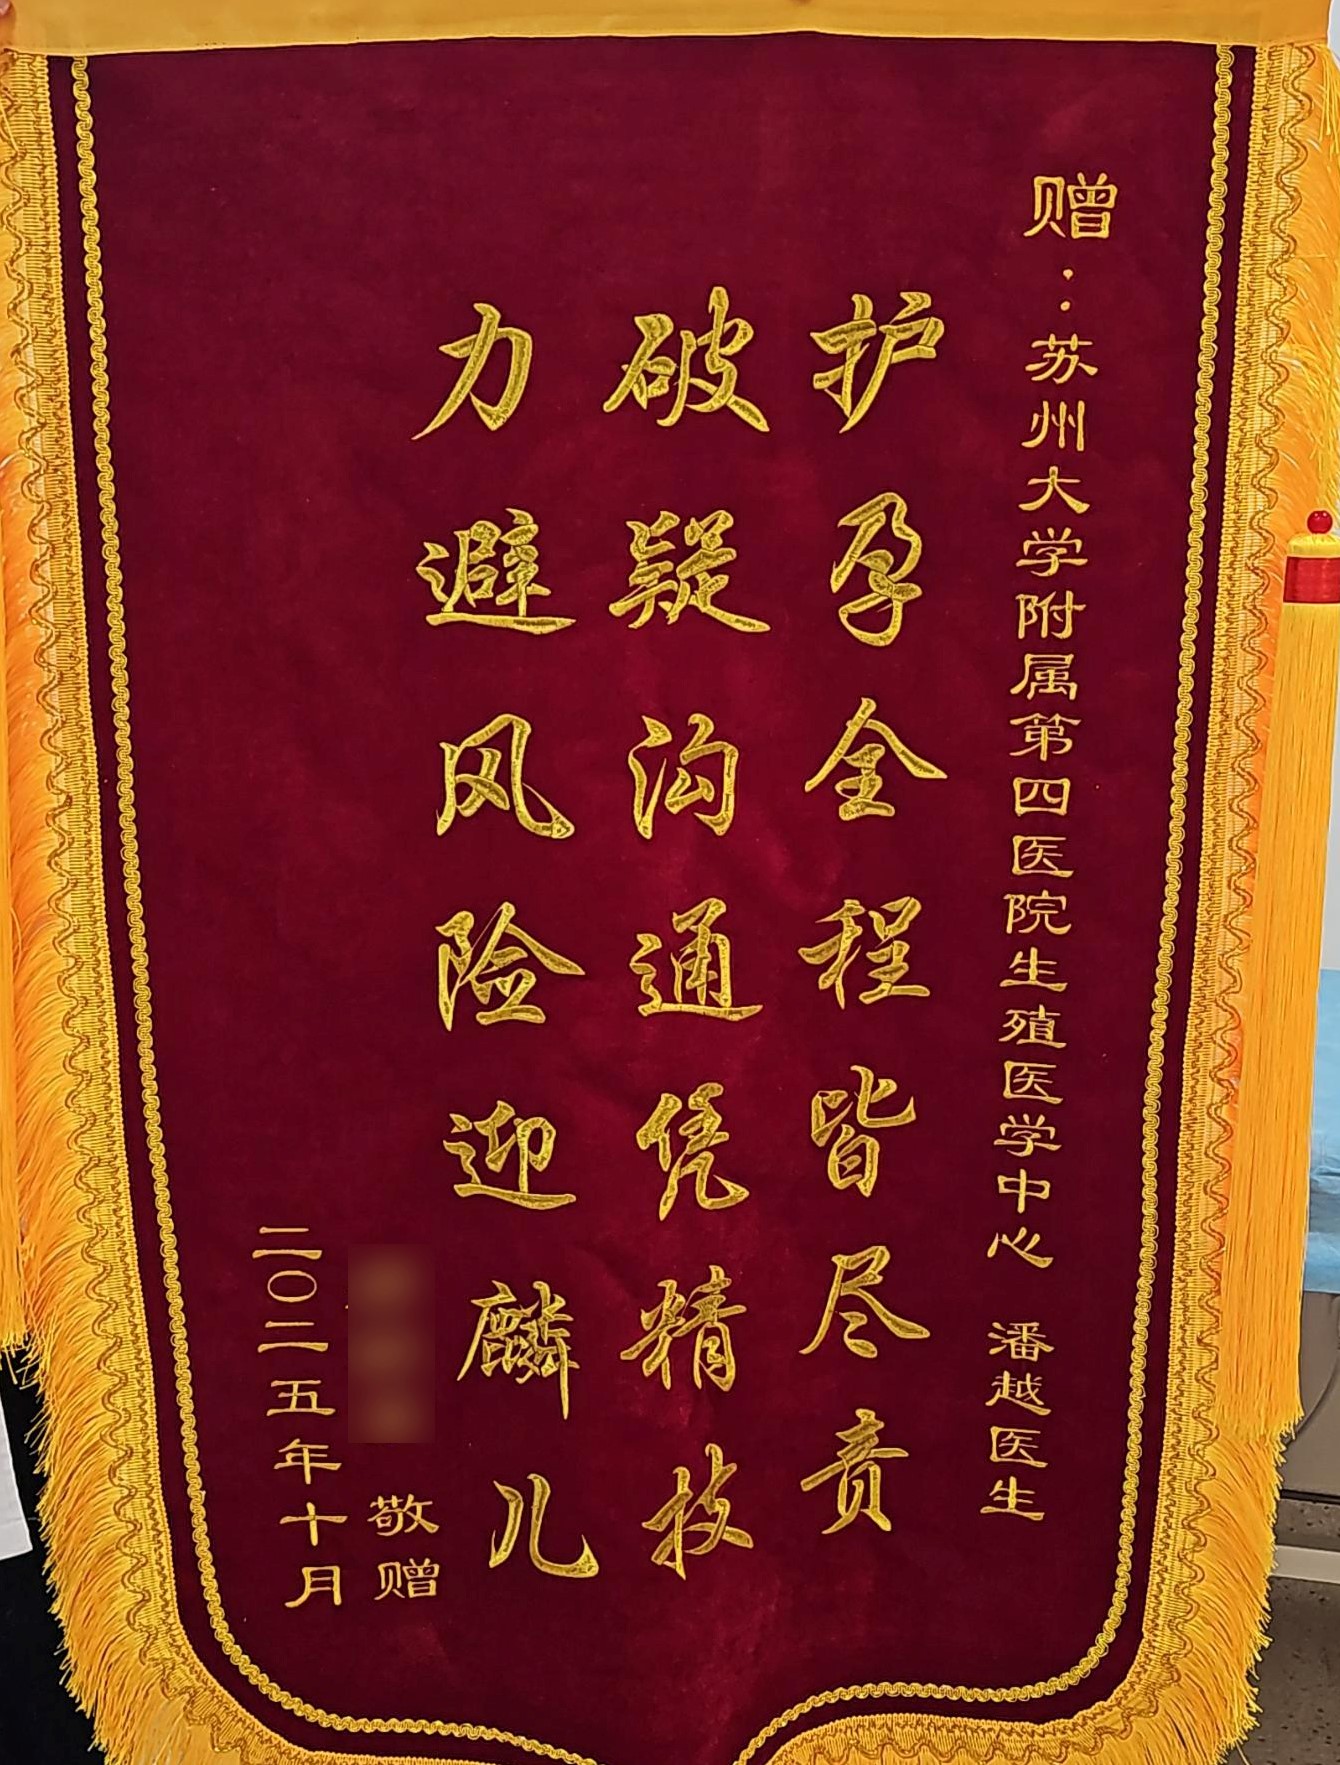 赠：苏州大学附属第四医院生殖医学中心 潘越医生
护孕全程皆尽责
破疑沟通凭精技
力避风险迎麟儿
敬赠
二〇二五年十月